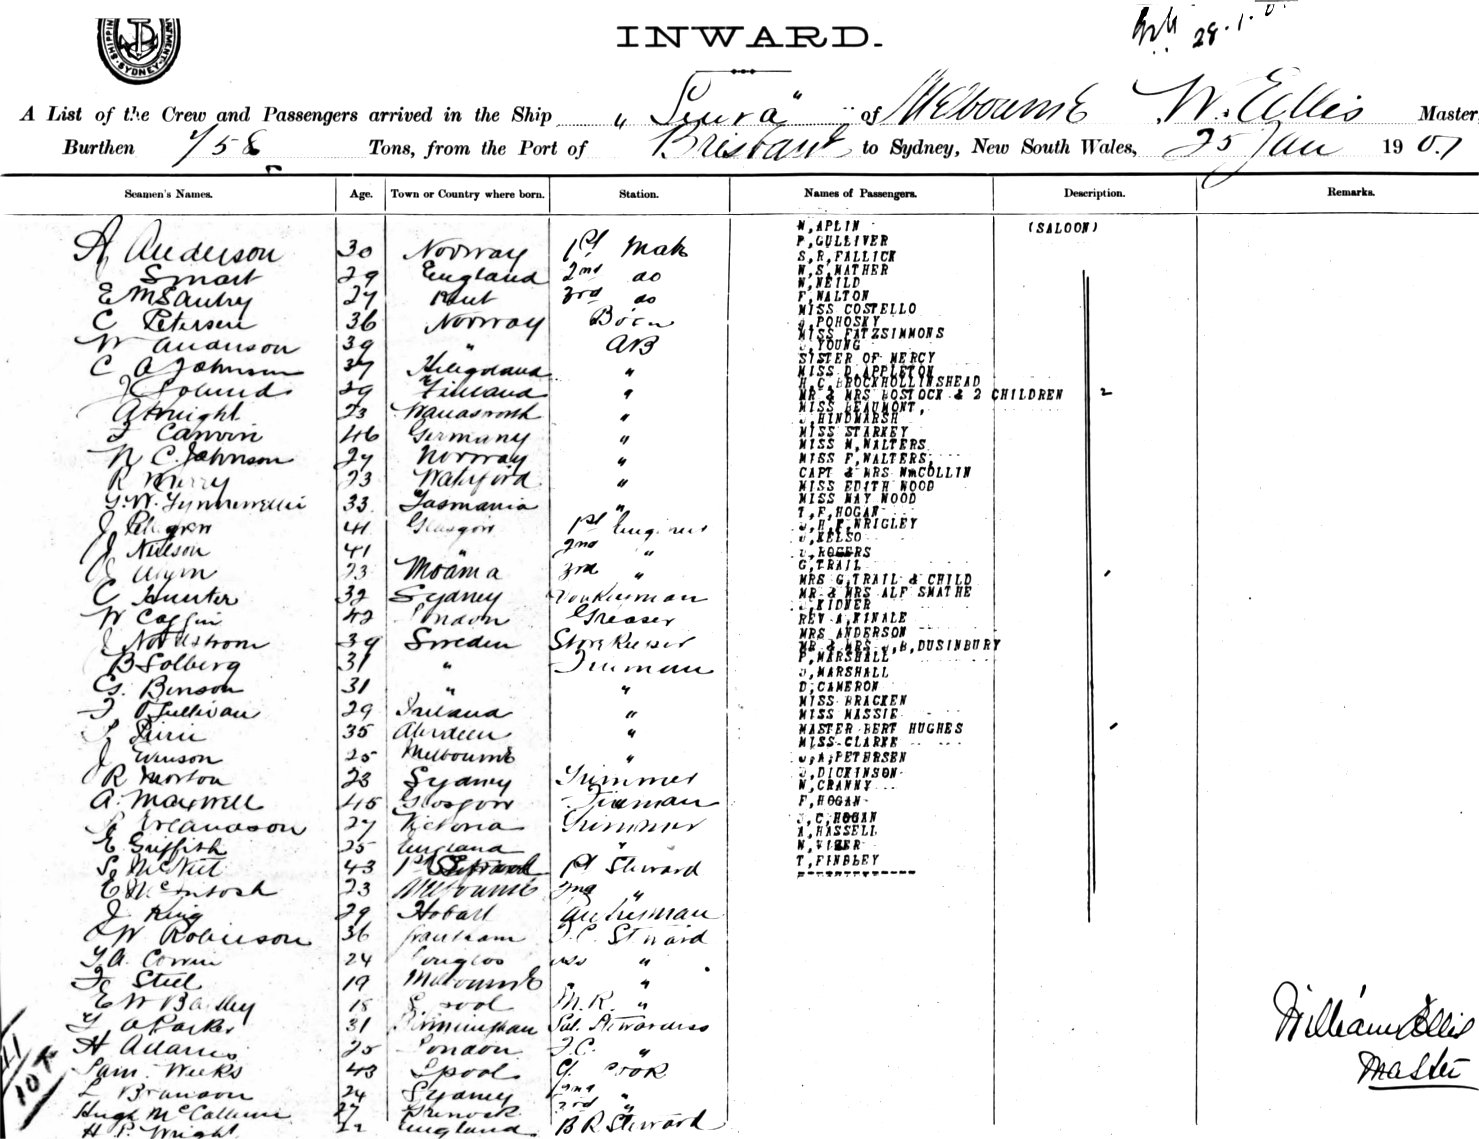 INWARD.
28.1.0
A List of the Crew and Passengers arrived in the Ship „ Leura " of Melbourne W. Ellis Master,
Burthen Tons, from the Port of Brisbane to Sydney, New South Wales, 25 Jan 1901
Seamen's Names. Age. Town or Country where born. Station. Names of Passengers. Description. Remarks.
A Anderson 30 Norway 1st Mate
Smart 29 England 2nd do
E 27 Kent 3rd do
C Petersen 36 Norway Bosn
W Anderson 39 " AB
C A Johnson 37 "
29 Finland "
A Knight 23 Wandsworth "
46 Germany "
N C. Johnson 27 Norway "
R Murry 23 Waterford "
G. W. 33 Tasmania "
J 41 Glasgow 1st Engineer
J Neilson 41 " 2nd "
23 Moama 3rd "
C Hunter 32 Sydney Donkeyman
W 42 London Greaser
J Nordstrom 39 Sweden Storekeeper
B Solberg 31 " Fireman
G. Benson 31 " "
T O'Sullivan 29 Ireland "
35 Aberdeen "
J 25 Melbourne "
R Morton 23 Sydney Trimmer
A. Maxwell 45 Glasgow Fireman
27 Victoria Trimmer
E Griffith 25 England "
S 43 1st 1st Steward
E McIntosh 23 Melbourne 2nd "
J King 29 Hobart
W Robinson 36 Grantham F.C. Steward
24 Douglas "
Steel 19 Melbourne "
E W Bailey 18 L'pool M.R. "
G A Parker 31 Birmingham Sal. Stewardess
H Adams 25 London F.C. "
Sam. Weeks 43 L'pool Cook
L Branson 24 Sydney 2nd "
Hugh McCallum 27 Greenock 3rd "
H P. Wright England B R Steward
W,APLIN (SALOON)
P,GULLIVER
S,R,FALLICK
W,S,MATHER
W,NEILD
F,WALTON
MISS COSTELLO
J,POHOSKY
MISS FATZSIMMONS
J,YOUNG
SISTER OF MERCY
MISS D,APPLETON
H,C,BROCKHOLLINSHEAD
MR & MRS BOSTOCK & 2 CHILDREN 2
MISS BEAUMONT,
J,HINDMARSH
MISS STARKEY
MISS M,WALTERS
MISS F,WALTERS,
CAPT & MRS McCOLLIN
MISS EDITH WOOD
MISS MAY WOOD
T,F,HOGAN
J,H,F,WRIGLEY
J,KELSO
J,ROGERS
G,TRAIL
MRS G,TRAIL & CHILD
MR & MRS ALF SMATHE
J,KIDNER
REV A,KINALE
MRS ANDERSON
MR & MRS J,B,DUSINBURY
P,MARSHALL
J,MARSHALL
D,CAMERON
MISS BRACKEN
MISS MASSIE
MASTER BERT HUGHES
MISS CLARKE
J,A,PETERSEN
J,DICKINSON
W,CRANNY
F,HOGAN
J,C,HOGAN
A,HASSELL
T,FINDLEY
William Ellis
Master